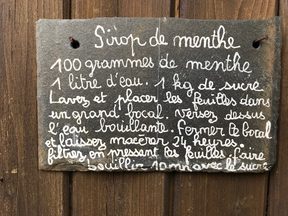 Sirop de menthe
100 grammes de menthe
1 litre d'eau. 1 kg de sucre
Lavez et placer les feuilles dans
un grand bocal. versez dessus
l'eau bouillante. Fermer le bocal
et laissez macérer 24 heures.
filtrez en pressant les feuilles. faire
bouillir 10mn avec le sucre